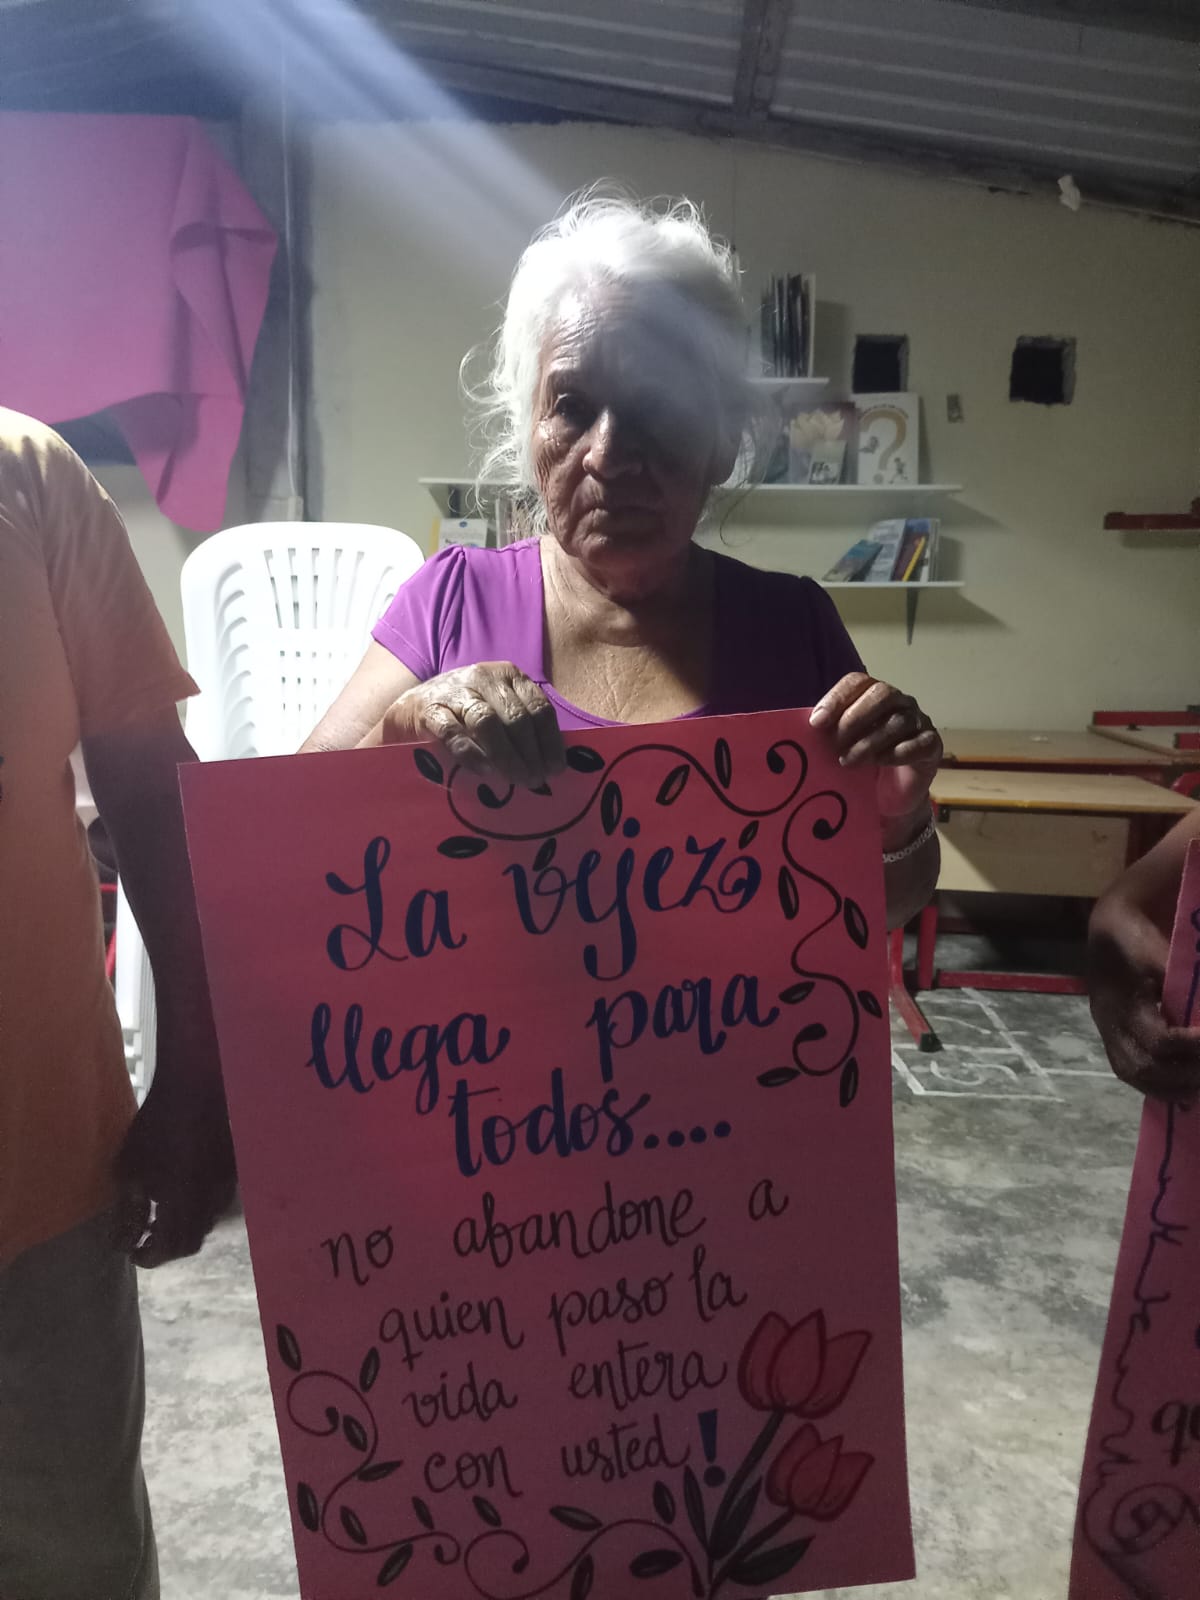 La vejez
llega para
todos....
no abandone a
quien paso la
vida entera
con usted!